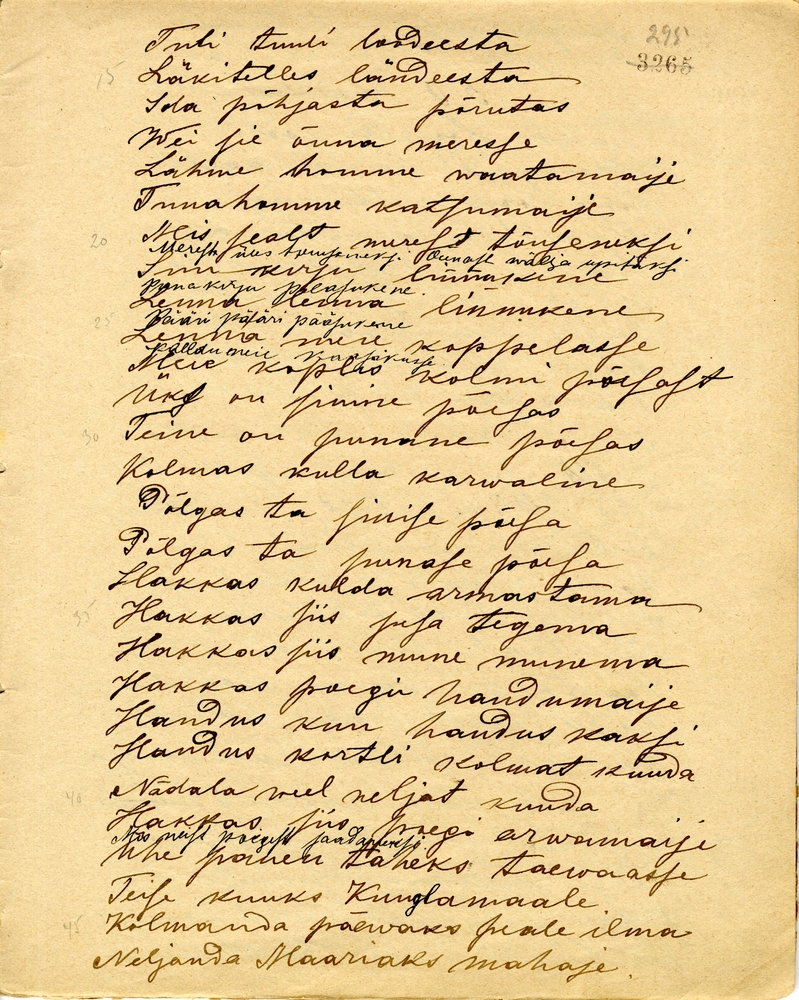 295
3265
Tuli tuuli loodeesta
15 Läkitelles ländeesta
Ida põhjasta põrutas
Wei sie õuna meresse
Lähme homme waatamaije
Tunahomme katsumaije
20 Mis sealt merest tõuseneksi
Merest üks tõuseneksi. Õunast wälja upitaksi
Sini kirju linnukine
Puna kirju pääsukene.
Lenna lenna linnukene
25 Pääri pääri pääsukene
Lenna meie koppelasse
Kalldu meie
Meie koplis kolmi põesast
Üks on sinine põesas
30 Teine on punane põesas
Kolmas kulla karwaline
Põlgas ta sinise põesa
Põlgas ta punase põesa
Hakkas kulda armastama
35 Hakkas siis pesa tegema
Hakkas siis mune munema
Hakkas poegii haudumaije
Haudus kuu haudus kaksi
Haudus kortli kolmat kuuda
40 Nädala weel neljat kuuda
Hakkas siis poegi arwamaije
Mis neist poegist saadanekse.
Ühe panen täheks taewaasse
Teise kuuks Kunglamaale
45 Kolmanda päewaks peale ilma
Neljanda Maariaks mahaje.